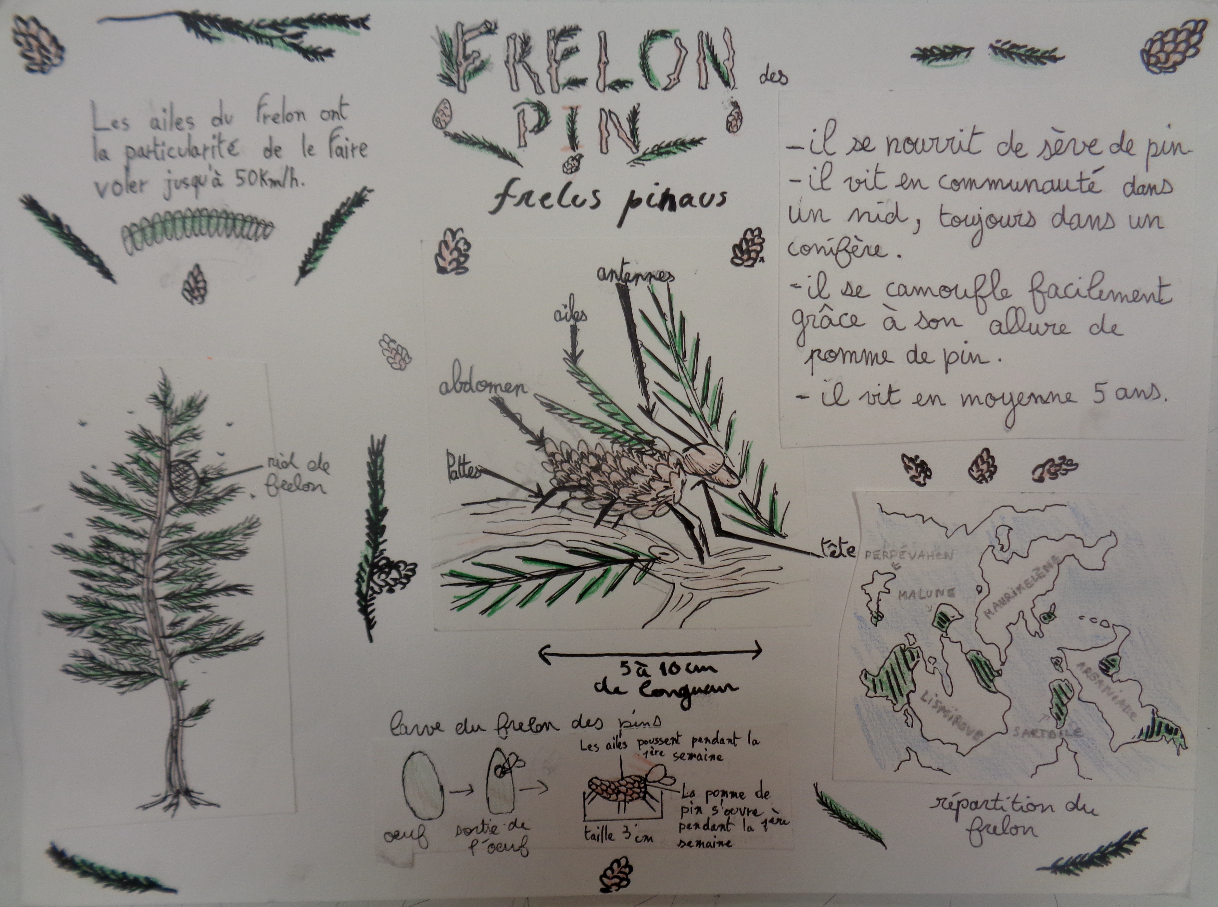 FRELON des
PIN
frelus pinaus
Les ailes du frelon ont
la particularité de le faire
voler jusqu'à 50km/h.
- il se nourrit de sève de pin
- il vit en communauté dans
un nid, toujours dans un
conifère.
- il se camoufle facilement
grâce à son allure de
pomme de pin.
- il vit en moyenne 5 ans.
antennes
ailes
abdomen
Pattes
tête
nid de
frelon
5 à 10 cm
de longueur
PERPÉVAHEN
MALUNE
MAURIKELÈNE
LISMIROVE
SARTOILE
répartition du
frelon
larve du frelon des pins
oeuf
sortie de
l'oeuf
Les ailes poussent pendant la
1ère semaine
taille 3 cm
La pomme de
pin s'ouvre
pendant la 1ère
semaine